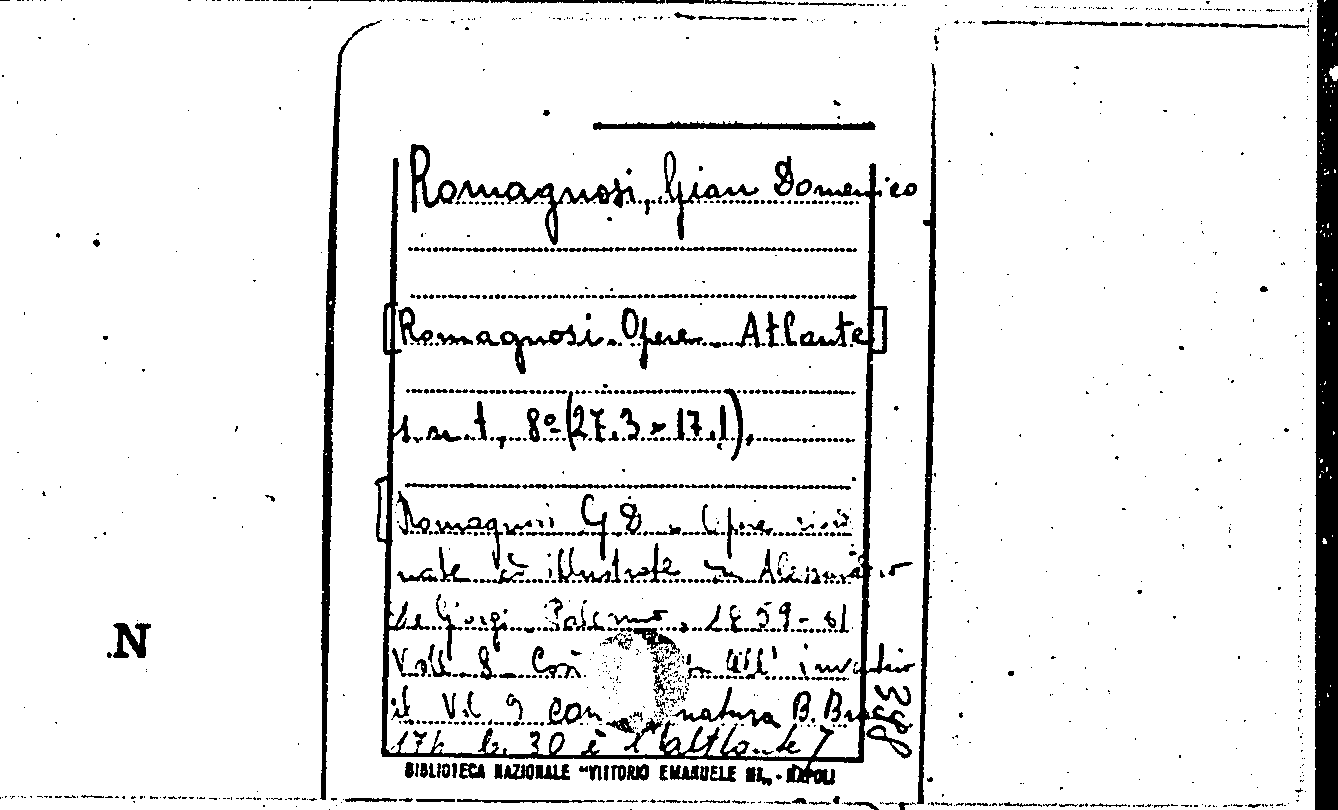 Romagnosi, Gian Domenico
[Romagnosi. Opere. Atlante]
s.n.t., 8º (27.3 × 17.1).
[Romagnosi G D. Opere riordi
nate ed illustrate da Alessandro
de Giorgi. Palermo. 1859-61
Voll. 8. Così all' inventario
il Vol 9 con natura B. Branc
17h 30 è l'atlante]
398
N
BIBLIOTECA NAZIONALE "VITTORIO EMANUELE III„ - NAPOLI